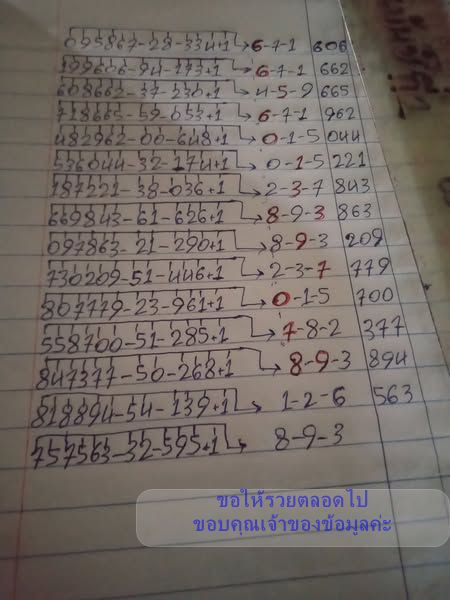 095867-28-334+1 6-7-1 606
199606-94-173+1 6-7-1 662
608662-37-230+1 4-5-9 665
718665-59-053+1 6-7-1 962
482962-00-648+1 0-1-5 044
536044-32-174+1 0-1-5 221
187221-38-036+1 2-3-7 843
669843-61-626+1 8-9-3 863
097863-21-290+1 8-9-3 209
730209-51-446+1 2-3-7 779
807779-23-961+1 0-1-5 700
558700-51-285+1 7-8-2 377
847377-50-268+1 8-9-3 894
818894-54-139+1 1-2-6 563
757563-32-595+1 8-9-3
ขอให้รวยตลอดไป
ขอบคุณเจ้าของข้อมูลค่ะ